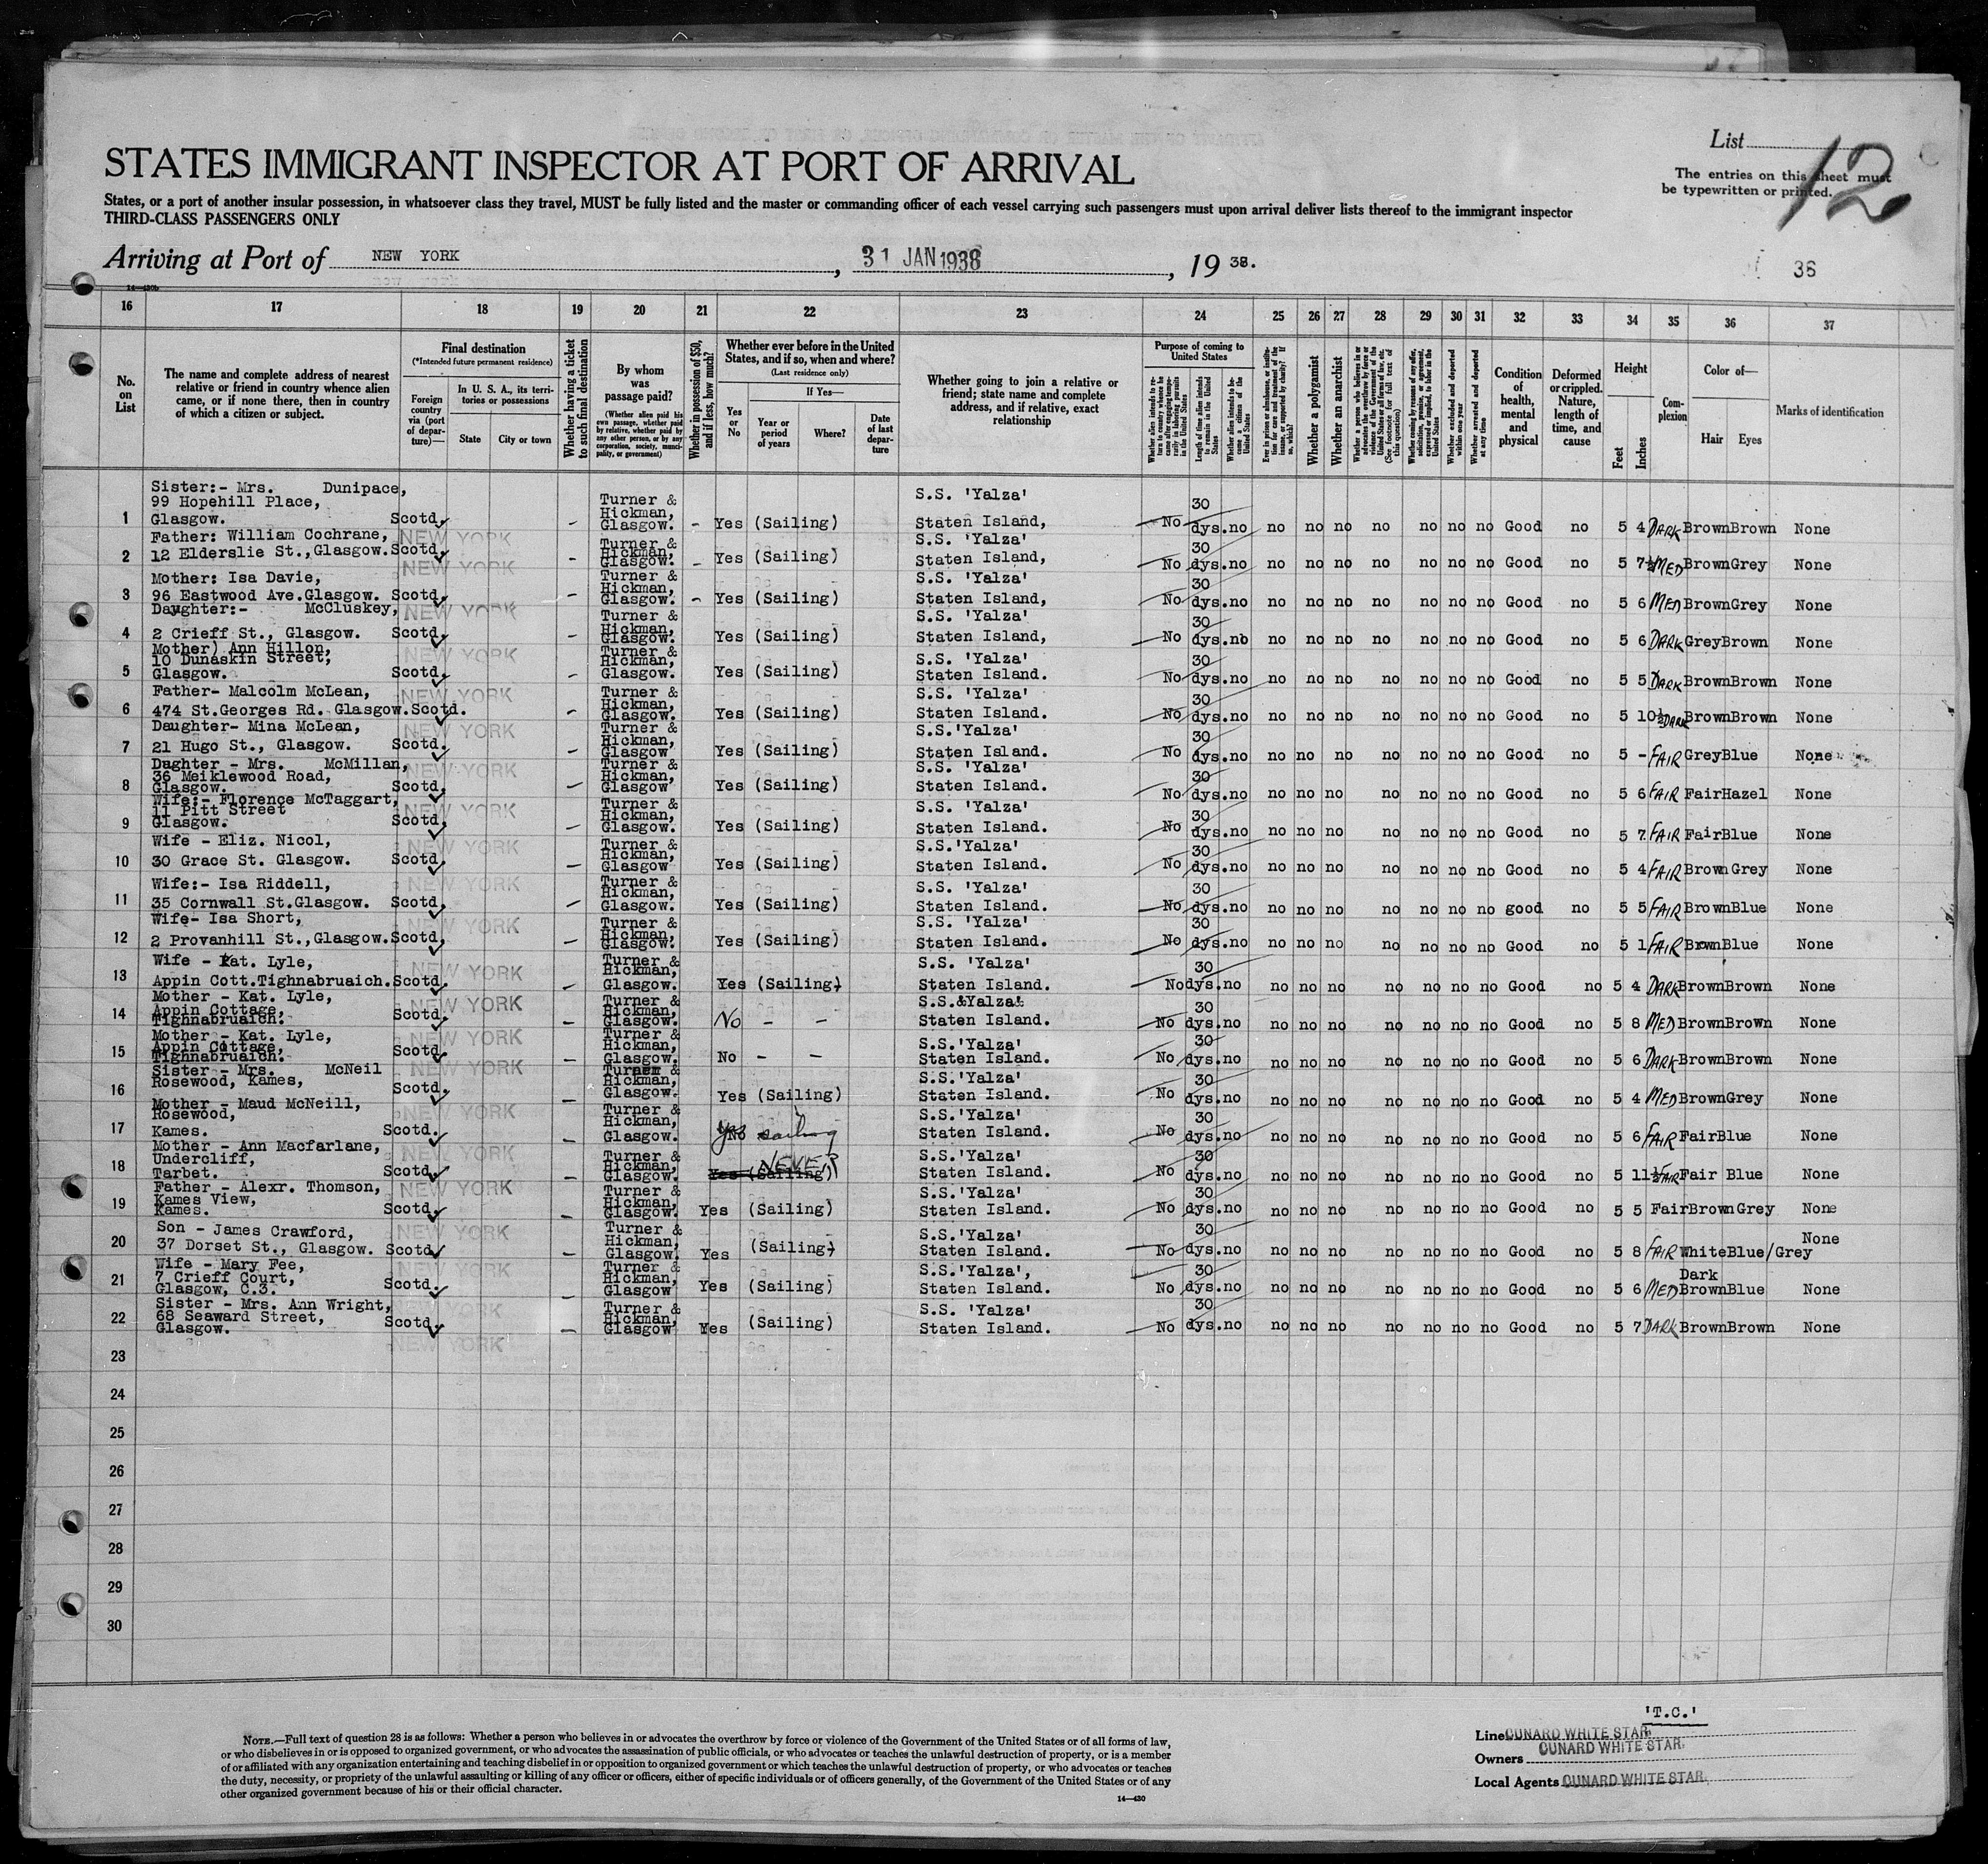 List 12
The entries on this sheet must
be typewritten or printed.
STATES IMMIGRANT INSPECTOR AT PORT OF ARRIVAL
States, or a port of another insular possession, in whatsoever class they travel, MUST be fully listed and the master or commanding officer of each vessel carrying such passengers must upon arrival deliver lists thereof to the immigrant inspector
THIRD-CLASS PASSENGERS ONLY
Arriving at Port of NEW YORK, 31 JAN 1938, 19 38.
36
14—430b
16 17 18 19 20 21 22 23 24 25 26 27 28 29 30 31 32 33 34 35 36 37
No. on List
The name and complete address of nearest relative or friend in country whence alien came, or if none there, then in country of which a citizen or subject.
Final destination
(*Intended future permanent residence)
Foreign country via (port of departure)—
In U. S. A., its territories or possessions
State
City or town
Whether having a ticket to such final destination
By whom was passage paid?
(Whether alien paid his own passage, whether paid by relative, whether paid by any other person, or by any corporation, society, municipality, or government)
Whether in possession of $50, and if less, how much?
Whether ever before in the United States, and if so, when and where?
(Last residence only)
If Yes—
Yes or No
Year or period of years
Where?
Date of last departure
Whether going to join a relative or friend; state name and complete address, and if relative, exact relationship
Purpose of coming to United States
Whether alien intends to return to country whence he came after engaging temporarily in laboring pursuits in the United States
Length of time alien intends to remain in the United States
Whether alien intends to become a citizen of the United States
Ever in prison or almshouse, or institution for care and treatment of the insane, or supported by charity? If so, which?
Whether a polygamist
Whether an anarchist
Whether a person who believes in or advocates the overthrow by force or violence of the Government of the United States or all forms of law, etc. (See footnote for full text of this question)
Whether coming by reasons of any offer, solicitation, promise, or agreement, expressed or implied, to labor in the United States
Whether excluded and deported within one year
Whether arrested and deported at any time
Condition of health, mental and physical
Deformed or crippled. Nature, length of time, and cause
Height
Feet
Inches
Complexion
Color of—
Hair
Eyes
Marks of identification
1 Sister:- Mrs. Dunipace, 99 Hopehill Place, Glasgow. Scotd. - Turner & Hickman, Glasgow. - Yes (Sailing) S.S. 'Yalza' Staten Island, No 30 dys. no no no no no no no no Good no 5 4 DARK Brown Brown None
NEW YORK
2 Father: William Cochrane, 12 Elderslie St., Glasgow. Scotd. - Turner & Hickman, Glasgow. - Yes (Sailing) S.S. 'Yalza' Staten Island, No 30 dys. no no no no no no no no Good no 5 7½ MED Brown Grey None
NEW YORK
3 Mother: Isa Davie, 96 Eastwood Ave. Glasgow. Scotd. - Turner & Hickman, Glasgow. - Yes (Sailing) S.S. 'Yalza' Staten Island, No 30 dys. no no no no no no no no Good no 5 6 MED Brown Grey None
NEW YORK
4 Daughter:- McCluskey, 2 Crieff St., Glasgow. Scotd. - Turner & Hickman, Glasgow. Yes (Sailing) S.S. 'Yalza' Staten Island, No 30 dys. no no no no no no no no Good no 5 6 DARK Grey Brown None
NEW YORK
5 Mother) Ann Hillon, 10 Dunaskin Street, Glasgow. Scotd. - Turner & Hickman, Glasgow. Yes (Sailing) S.S. 'Yalza' Staten Island. No 30 dys. no no no no no no no no Good no 5 5 DARK Brown Brown None
NEW YORK
6 Father- Malcolm McLean, 474 St. Georges Rd. Glasgow. Scotd. - Turner & Hickman, Glasgow. Yes (Sailing) S.S. 'Yalza' Staten Island. No 30 dys. no no no no no no no no Good no 5 10½ DARK Brown Brown None
NEW YORK
7 Daughter- Mina McLean, 21 Hugo St., Glasgow. Scotd. - Turner & Hickman, Glasgow Yes (Sailing) S.S.'Yalza' Staten Island. No 30 dys. no no no no no no no no Good no 5 - FAIR Grey Blue None
NEW YORK
8 Dughter - Mrs. McMillan, 36 Meiklewood Road, Glasgow. Scotd. - Turner & Hickman, Glasgow Yes (Sailing) S.S. 'Yalza' Staten Island. No 30 dys. no no no no no no no no Good no 5 6 FAIR Fair Hazel None
NEW YORK
9 Wife:- Florence McTaggart, 11 Pitt Street Glasgow. Scotd. - Turner & Hickman, Glasgow. Yes (Sailing) S.S. 'Yalza' Staten Island. No 30 dys. no no no no no no no no Good no 5 7. FAIR Fair Blue None
NEW YORK
10 Wife - Eliz. Nicol, 30 Grace St. Glasgow. Scotd. - Turner & Hickman, Glasgow Yes (Sailing) S.S.'Yalza' Staten Island. No 30 dys. no no no no no no no no Good no 5 4 FAIR Brown Grey None
NEW YORK
11 Wife:- Isa Riddell, 35 Cornwall St. Glasgow. Scotd. - Turner & Hickman, Glasgow. Yes (Sailing) S.S. 'Yalza' Staten Island. No 30 dys. no no no no no no no no good no 5 5 FAIR Brown Blue None
NEW YORK
12 Wife- Isa Short, 2 Provanhill St., Glasgow. Scotd. - Turner & Hickman, Glasgow. Yes (Sailing) S.S. 'Yalza' Staten Island. No 30 dys. no no no no no no no no Good no 5 1 FAIR Brown Blue None
NEW YORK
13 Wife - Kat. Lyle, Appin Cott. Tighnabruaich. Scotd. - Turner & Hickman, Glasgow. Yes (Sailing) S.S. 'Yalza' Staten Island. No 30 dys. no no no no no no no no Good no 5 4 DARK Brown Brown None
NEW YORK
14 Mother - Kat. Lyle, Appin Cottage, Tighnabruaich. Scotd. - Turner & Hickman, Glasgow. No - - S.S.&Yalza& Staten Island. No 30 dys. no no no no no no no no Good no 5 8 MED Brown Brown None
NEW YORK
15 Mother - Kat. Lyle, Appin Cottage, Tighnabruaich. Scotd. - Turner & Hickman, Glasgow. No - - S.S.'Yalza' Staten Island. No 30 dys. no no no no no no no no Good no 5 6 DARK Brown Brown None
NEW YORK
16 Sister - Mrs. McNeil Rosewood, Kames, Scotd. - Turner & Hickman, Glasgow. Yes (Sailing) S.S.'Yalza' Staten Island. No 30 dys. no no no no no no no no Good no 5 4 MED Brown Grey None
NEW YORK
17 Mother - Maud McNeill, Rosewood, Kames. Scotd. - Turner & Hickman, Glasgow. yes sailing S.S.'Yalza' Staten Island. No 30 dys. no no no no no no no no Good no 5 6 FAIR Fair Blue None
NEW YORK
18 Mother - Ann Macfarlane, Undercliff, Tarbet. Scotd. - Turner & Hickman, Glasgow. Yes (Sailing) NEVER S.S.'Yalza' Staten Island. No 30 dys. no no no no no no no no Good no 5 11½ FAIR Fair Blue None
NEW YORK
19 Father - Alexr. Thomson, Kames View, Kames. Scotd. - Turner & Hickman, Glasgow. Yes (Sailing) S.S.'Yalza' Staten Island. No 30 dys. no no no no no no no no Good no 5 5 Fair Brown Grey None
NEW YORK
20 Son - James Crawford, 37 Dorset St., Glasgow. Scotd. - Turner & Hickman, Glasgow. Yes (Sailing) S.S.'Yalza' Staten Island. No 30 dys. no no no no no no no no Good no 5 8 FAIR White Blue/Grey None
NEW YORK
21 Wife - Mary Fee, 7 Crieff Court, Glasgow, C.3. Scotd. - Turner & Hickman, Glasgow Yes (Sailing) S.S.'Yalza', Staten Island. No 30 dys. no no no no no no no no Good no 5 6 MED Dark Brown Blue None
NEW YORK
22 Sister - Mrs. Ann Wright, 68 Seaward Street, Glasgow. Scotd. - Turner & Hickman, Glasgow Yes (Sailing) S.S. 'Yalza' Staten Island. No 30 dys. no no no no no no no no Good no 5 7 DARK Brown Brown None
NEW YORK
23
24
25
26
27
28
29
30
NOTE.—Full text of question 28 is as follows: Whether a person who believes in or advocates the overthrow by force or violence of the Government of the United States or of all forms of law,
or who disbelieves in or is opposed to organized government, or who advocates the assassination of public officials, or who advocates or teaches the unlawful destruction of property, or is a member
of or affiliated with any organization entertaining and teaching disbelief in or opposition to organized government or which teaches the unlawful destruction of property, or who advocates or teaches
the duty, necessity, or propriety of the unlawful assaulting or killing of any officer or officers, either of specific individuals or of officers generally, of the Government of the United States or of any
other organized government because of his or their official character.
14—430
'T.C.'
Line CUNARD WHITE STAR.
Owners CUNARD WHITE STAR.
Local Agents CUNARD WHITE STAR.